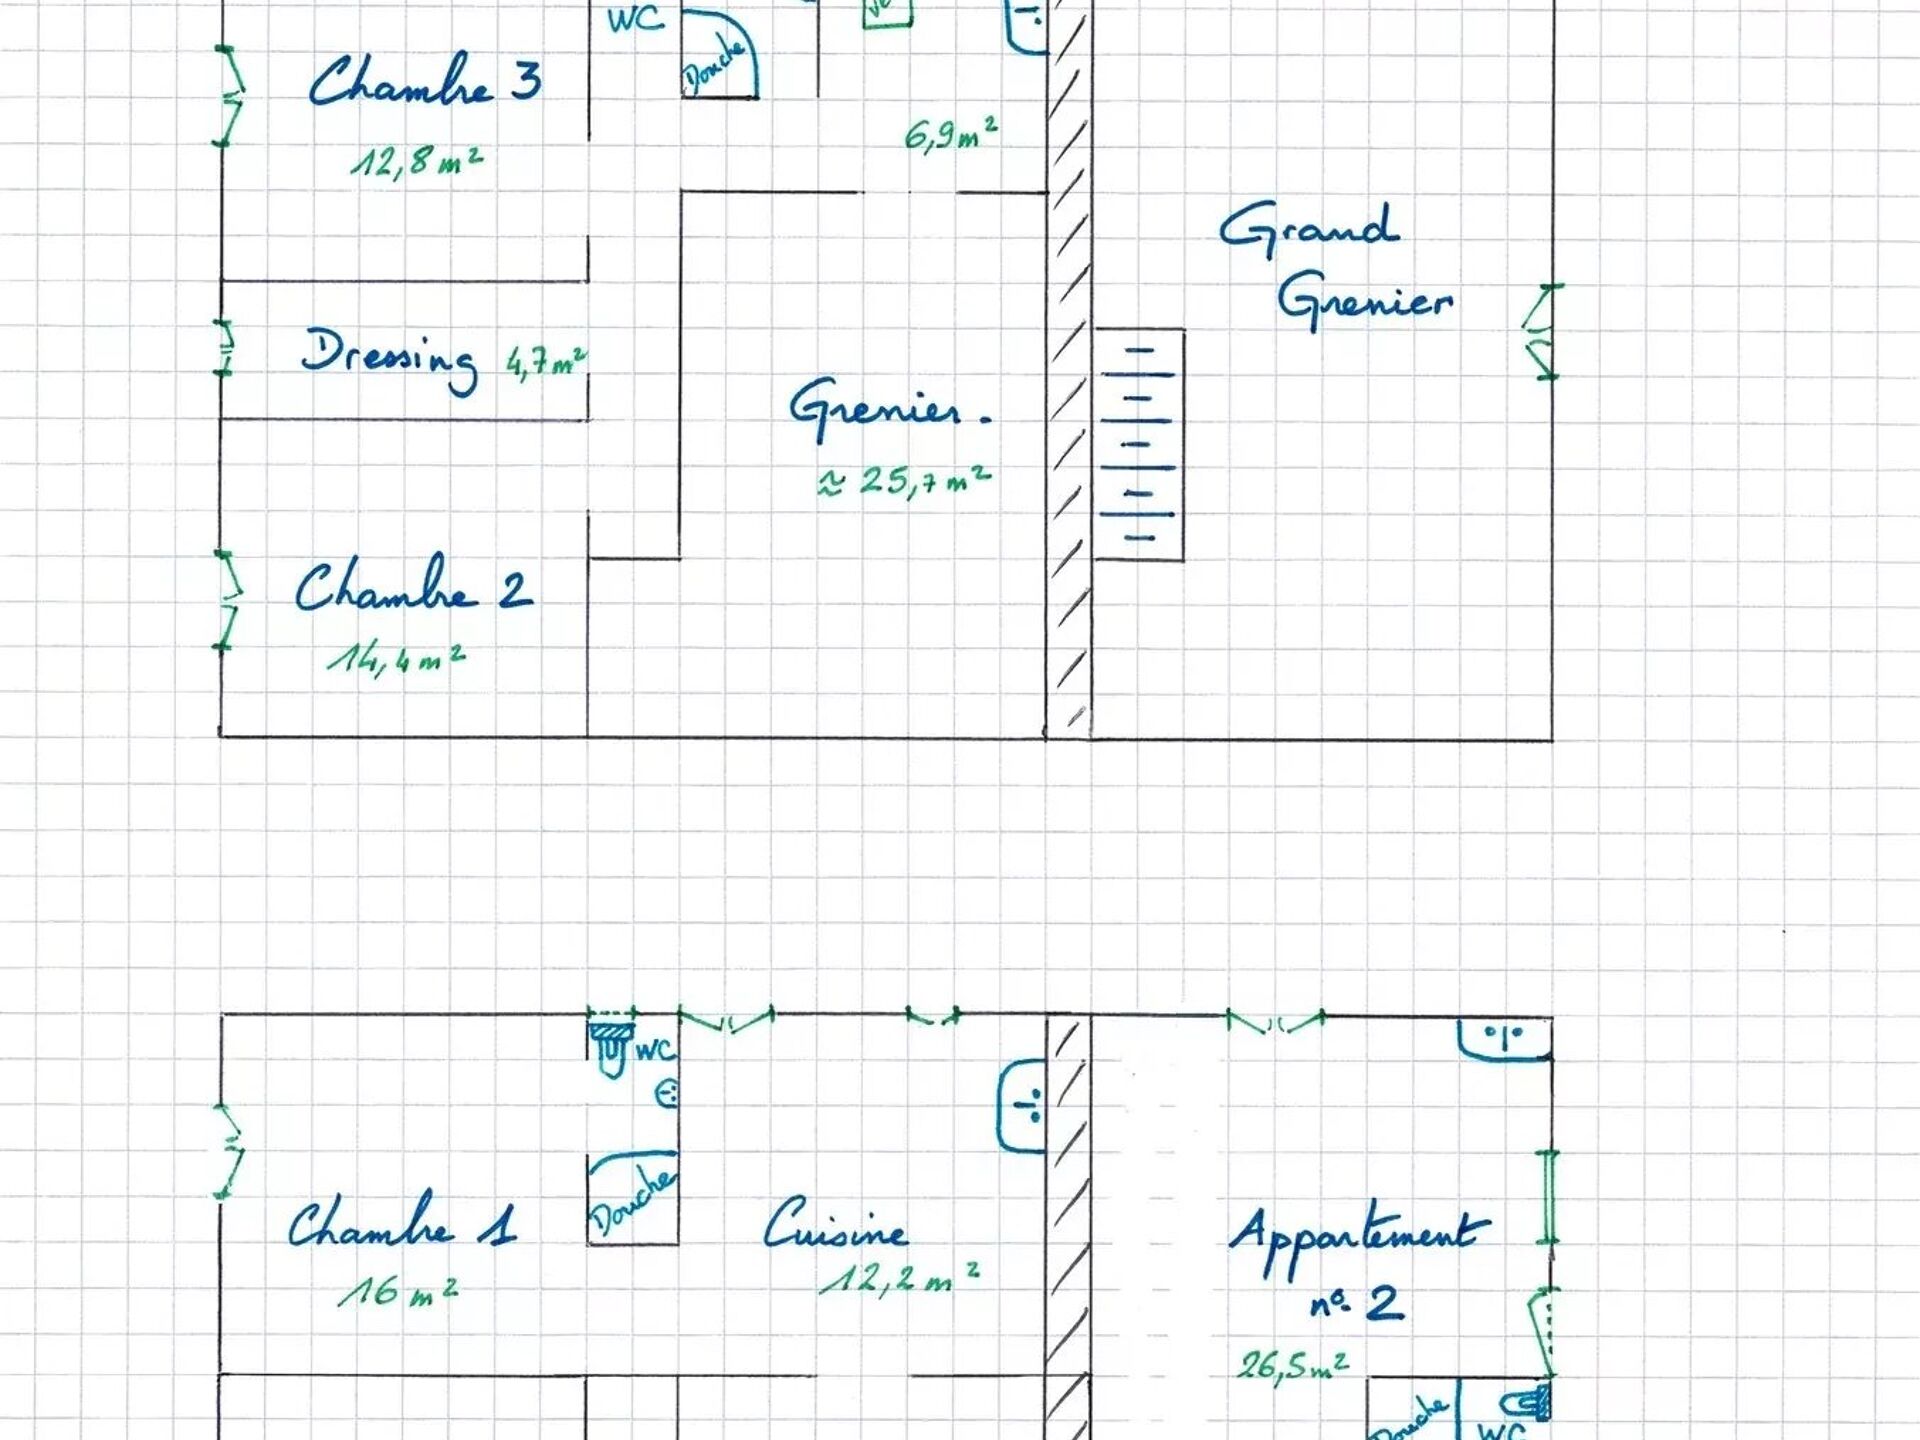 WC
Douche
Chambre 3
12,8 m²
6,9 m²
Grand
Grenier
Dressing 4,7 m²
Grenier.
≈ 25,7 m²
Chambre 2
14,4 m²
WC
Douche
Chambre 1
16 m²
Cuisine
12,2 m²
Appartement
n° 2
26,5 m²
Douche
WC